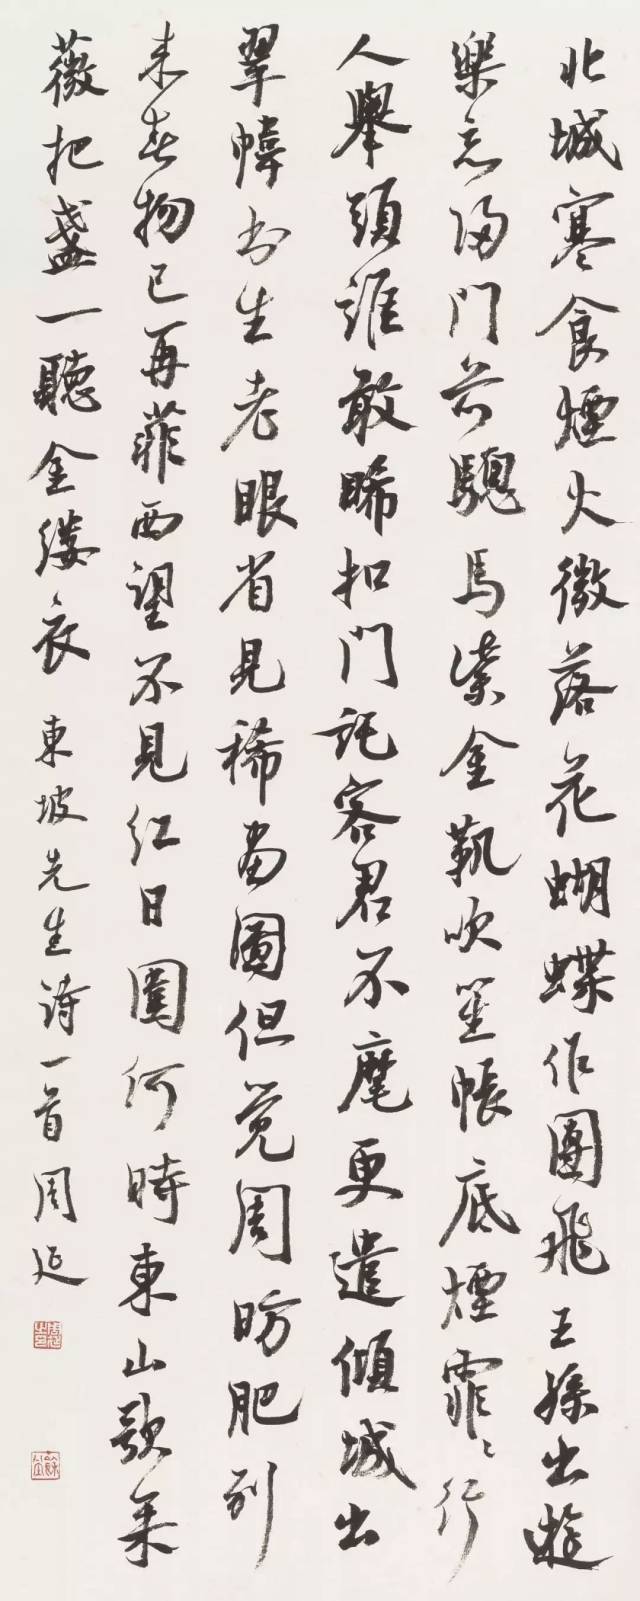 北城寒食煙火微落花蝴蝶作團飛王孫出遊
樂忘歸門前驄馬紫金鞿吹笙帳底煙霏霏行
人舉頭誰敢睎扣門詫客君不麾更遣傾城出
翠帷书生老眼省見稀畫圖但覺周昉肥別
来春物已再菲西望不見紅日圍何時東山歌采
薇把盞一聽金縷衣
東坡先生诗一首周延